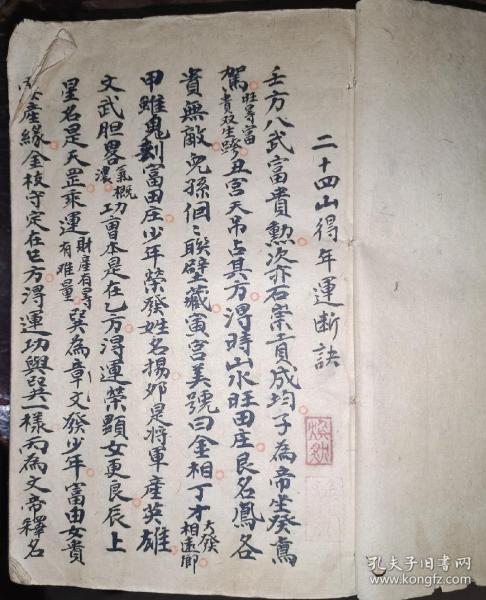 二十四山得年運断訣
壬方八武富貴勲次亦右宗貢成均子為帝坐癸鸞
駕旺丑宫天吊占其方得時山水旺田庄艮名鳳各
貴無敵兒孫個々聯壁藏寅宫美號曰金相丁才大發
甲雖鬼刼富田庄少年榮發姓名揚卯是將軍產英雄
文武胆畧濃氣概功曹本是在乙方得運榮顯女更良辰上
星名是天罡乘運財產有有难量巽為章文發少年富由女貴
產緣金枝守定在巳方得運功與巽一樣丙為文帝釋名
孔夫子旧书网
www.kongfz.com